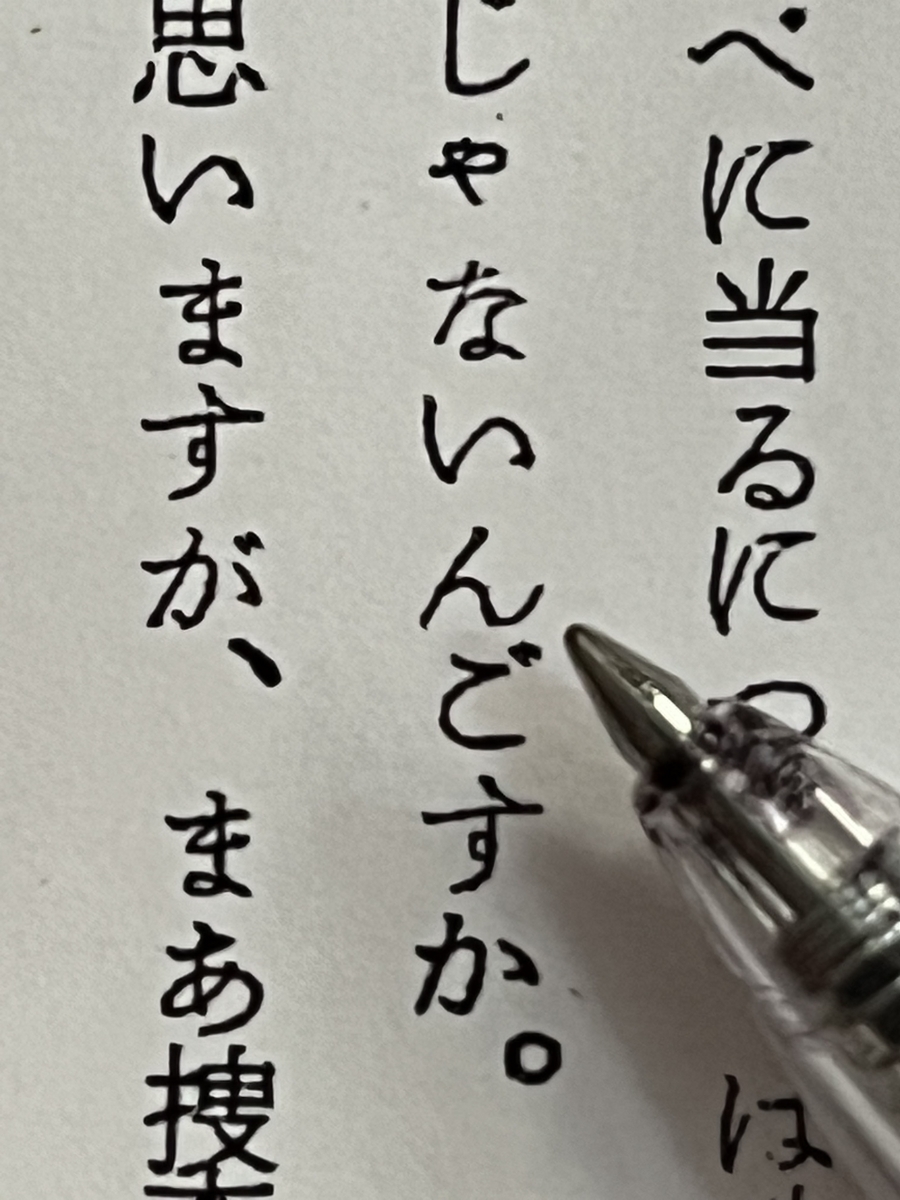 べに当るに
じゃないんですか。
思いますが、まあ捜